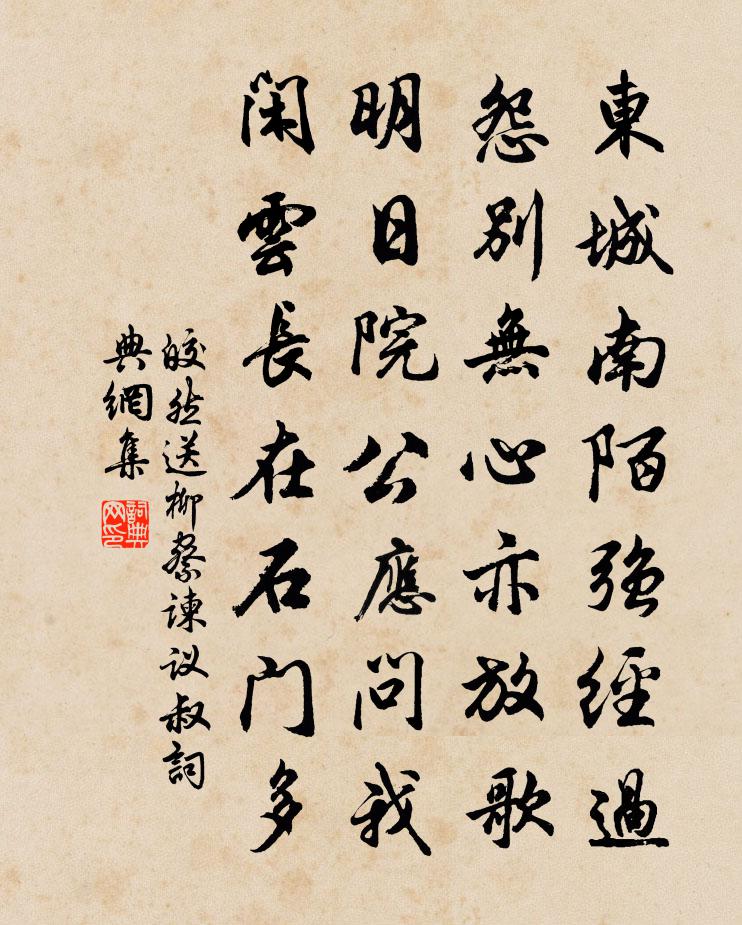 東城南陌強經過
怨別無心亦放歌
明日院公應問我
閑雲長在石門多
皎然送柳察諫议叔詞
典網集
詞典网印